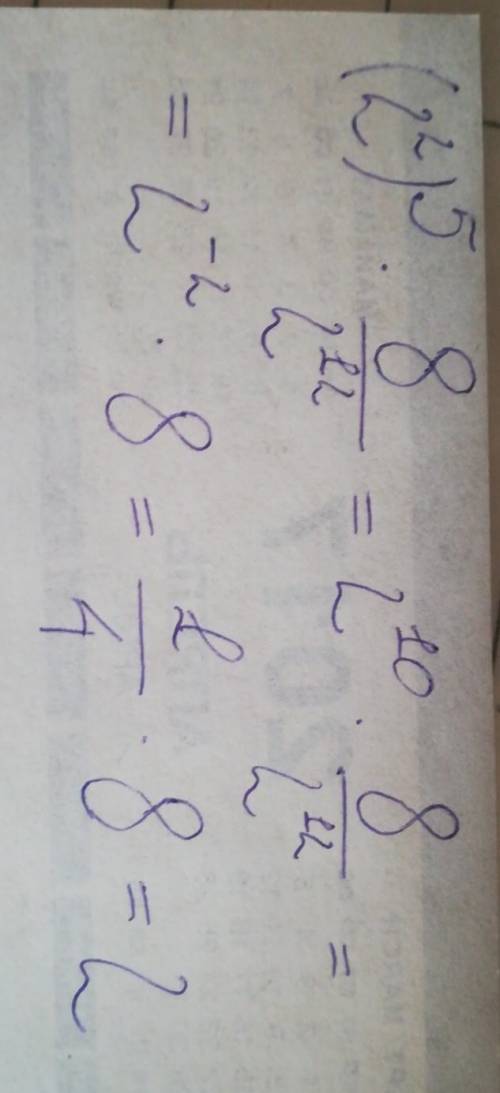 (2²)⁵ · 8/2¹² = 2¹⁰ · 8/2¹² =
= 2⁻² · 8 = 1/4 · 8 = 2